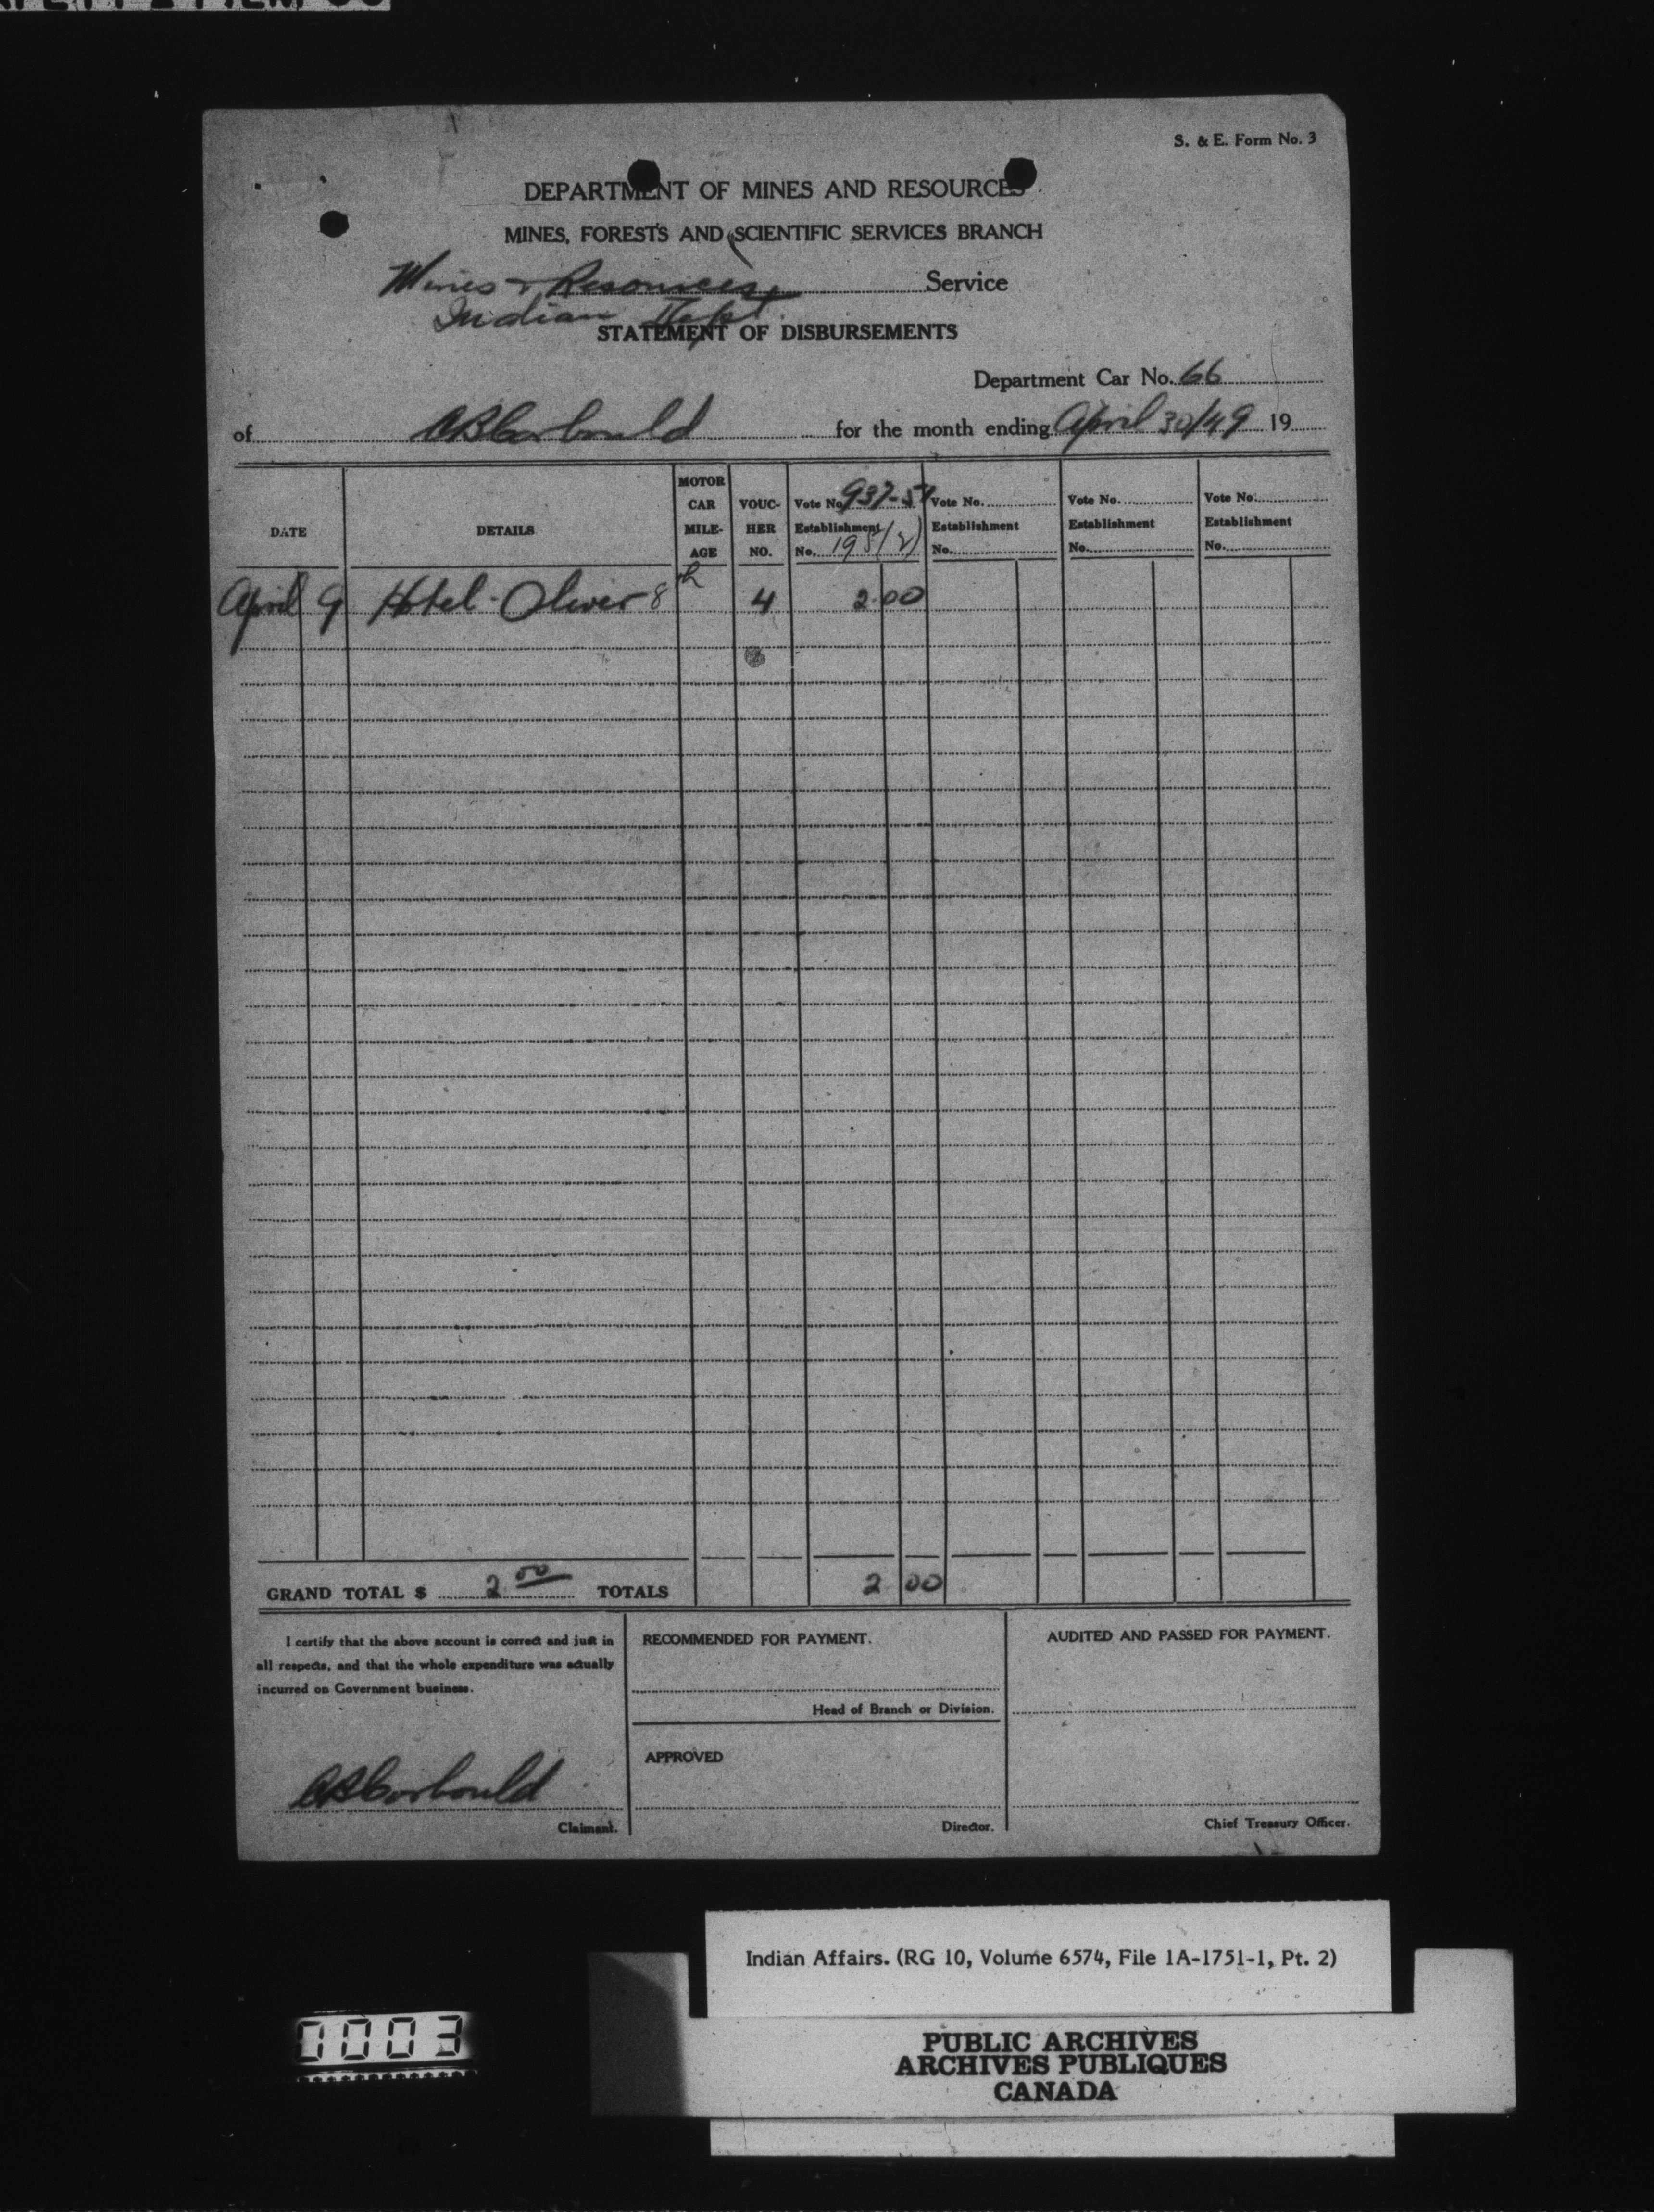 S. & E. Form No. 3
DEPARTMENT OF MINES AND RESOURCES
MINES, FORESTS AND SCIENTIFIC SERVICES BRANCH
Mines & Resources Service
Indian Dept.
STATEMENT OF DISBURSEMENTS
Department Car No. 66
of A B Corbould for the month ending April 30/49 19
DATE DETAILS MOTOR CAR MILE-AGE VOUC-HER NO. Vote No. 937-51 Establishment No. 195(2) Vote No. Establishment No. Vote No. Establishment No. Vote No. Establishment No.
April 9 Hotel - Oliver 8th 4 2.00
GRAND TOTAL $ 2 00 TOTALS 2 00
I certify that the above account is correct and just in
all respects, and that the whole expenditure was actually
incurred on Government business.
A B Corbould
Claimant.
RECOMMENDED FOR PAYMENT.
Head of Branch or Division.
APPROVED
Director.
AUDITED AND PASSED FOR PAYMENT.
Chief Treasury Officer.
Indian Affairs. (RG 10, Volume 6574, File 1A-1751-1, Pt. 2)
0003
PUBLIC ARCHIVES
ARCHIVES PUBLIQUES
CANADA